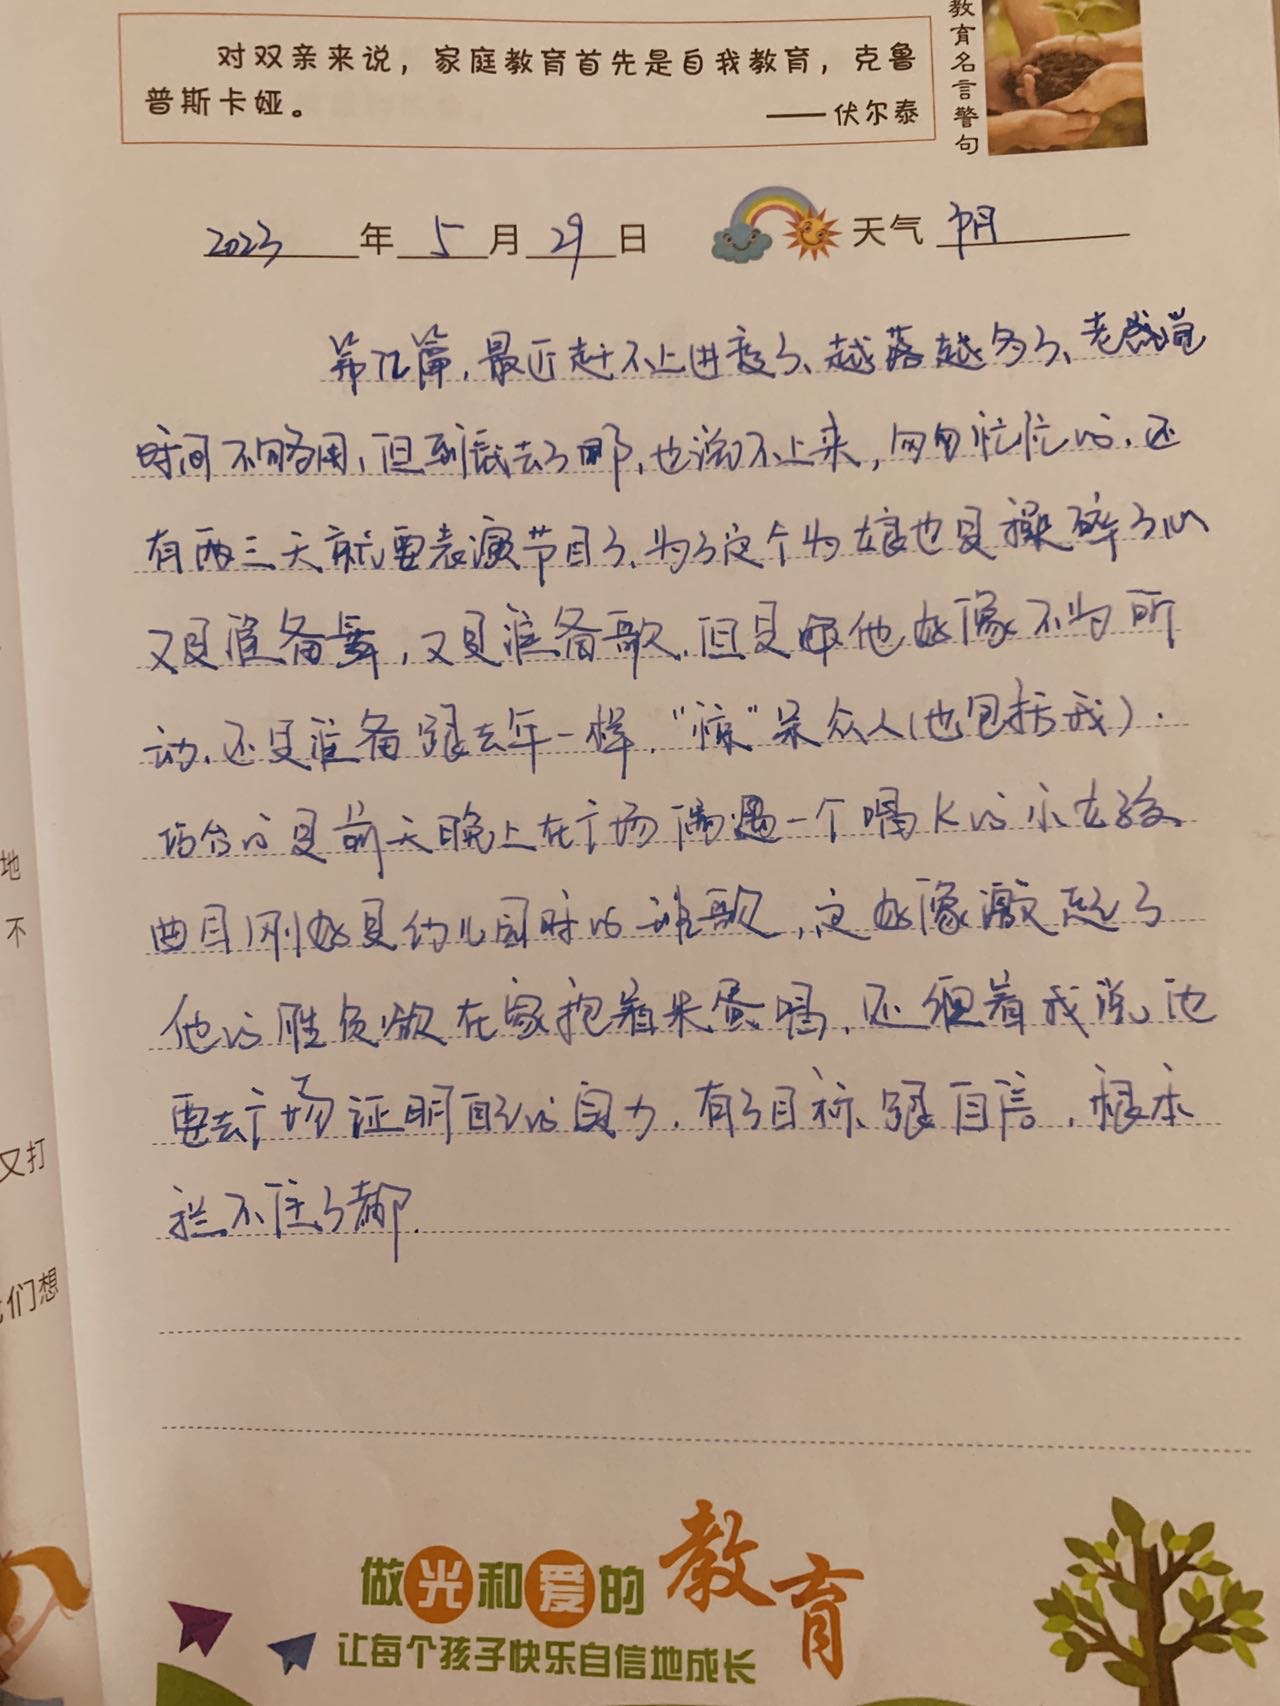 对双亲来说，家庭教育首先是自我教育，克鲁
普斯卡娅。
——伏尔泰
教育名言警句
2023年5月29日 天气 阴
第九篇，最近赶不上进度了、越落越多了、老感觉
时间不够用，但到底去了哪，也说不上来，匆匆忙忙的，还
有两三天就要表演节目了，为了这个为娘也是操碎了心
又是准备舞，又是准备歌，但是他好像不为所
动、还是准备跟去年一样，“惊”呆众人(也包括我)．
恰合的是前天晚上在广场偶遇一个唱K的小女孩
曲目刚好是幼儿园时的班歌，这好像激起了
他的胜负欲在家抱着朱蛋唱，还缠着我说他
要去广场证明自己的实力．有了目标、很自信，根本
拦不住了都．
地
不
又打
们想
做光和爱的教育
让每个孩子快乐自信地成长